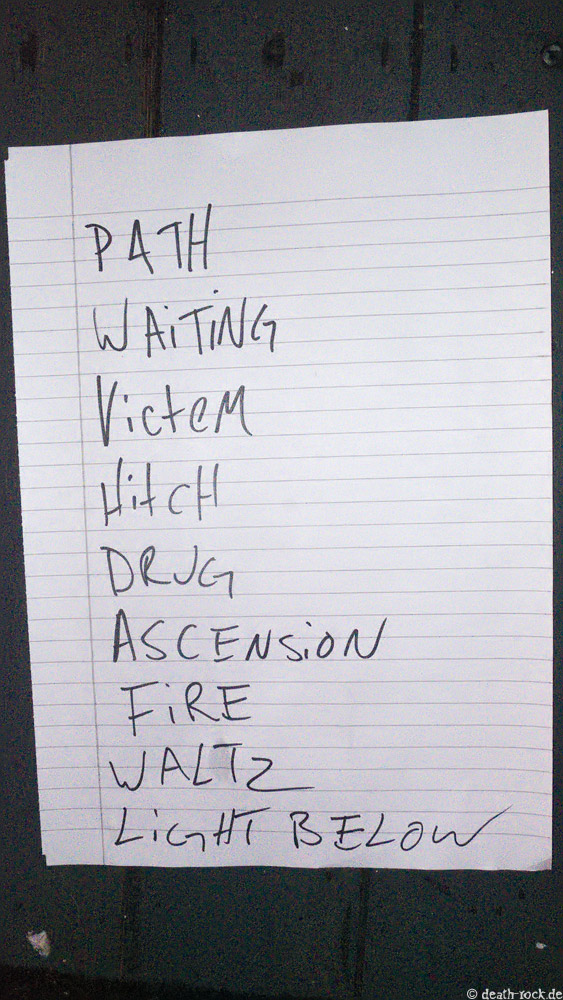 PATH
WAiTiNG
VicteM
HitcH
DRUG
ASCENSiON
FiRE
WALTZ
LiGHT BELOW
© death-rock.de